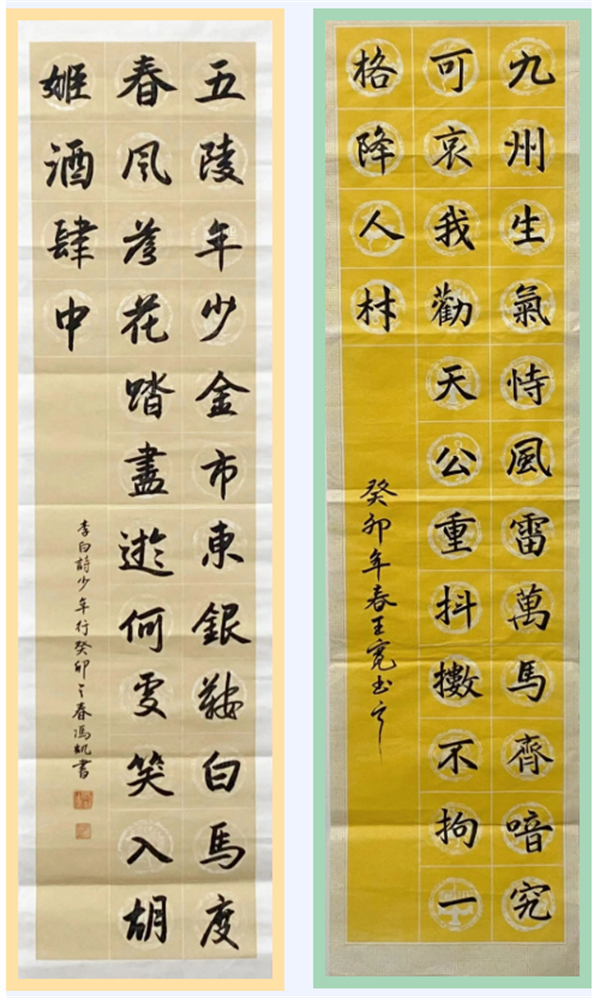 五陵年少金市東銀鞍白馬度
春风落花踏盡遊何處笑入胡
姬酒肆中
李白詩少年行癸卯之春馮凱書
九州生氣恃風雷萬馬齊喑究
可哀我勸天公重抖擻不拘一
格降人材
癸卯年春王寬书之